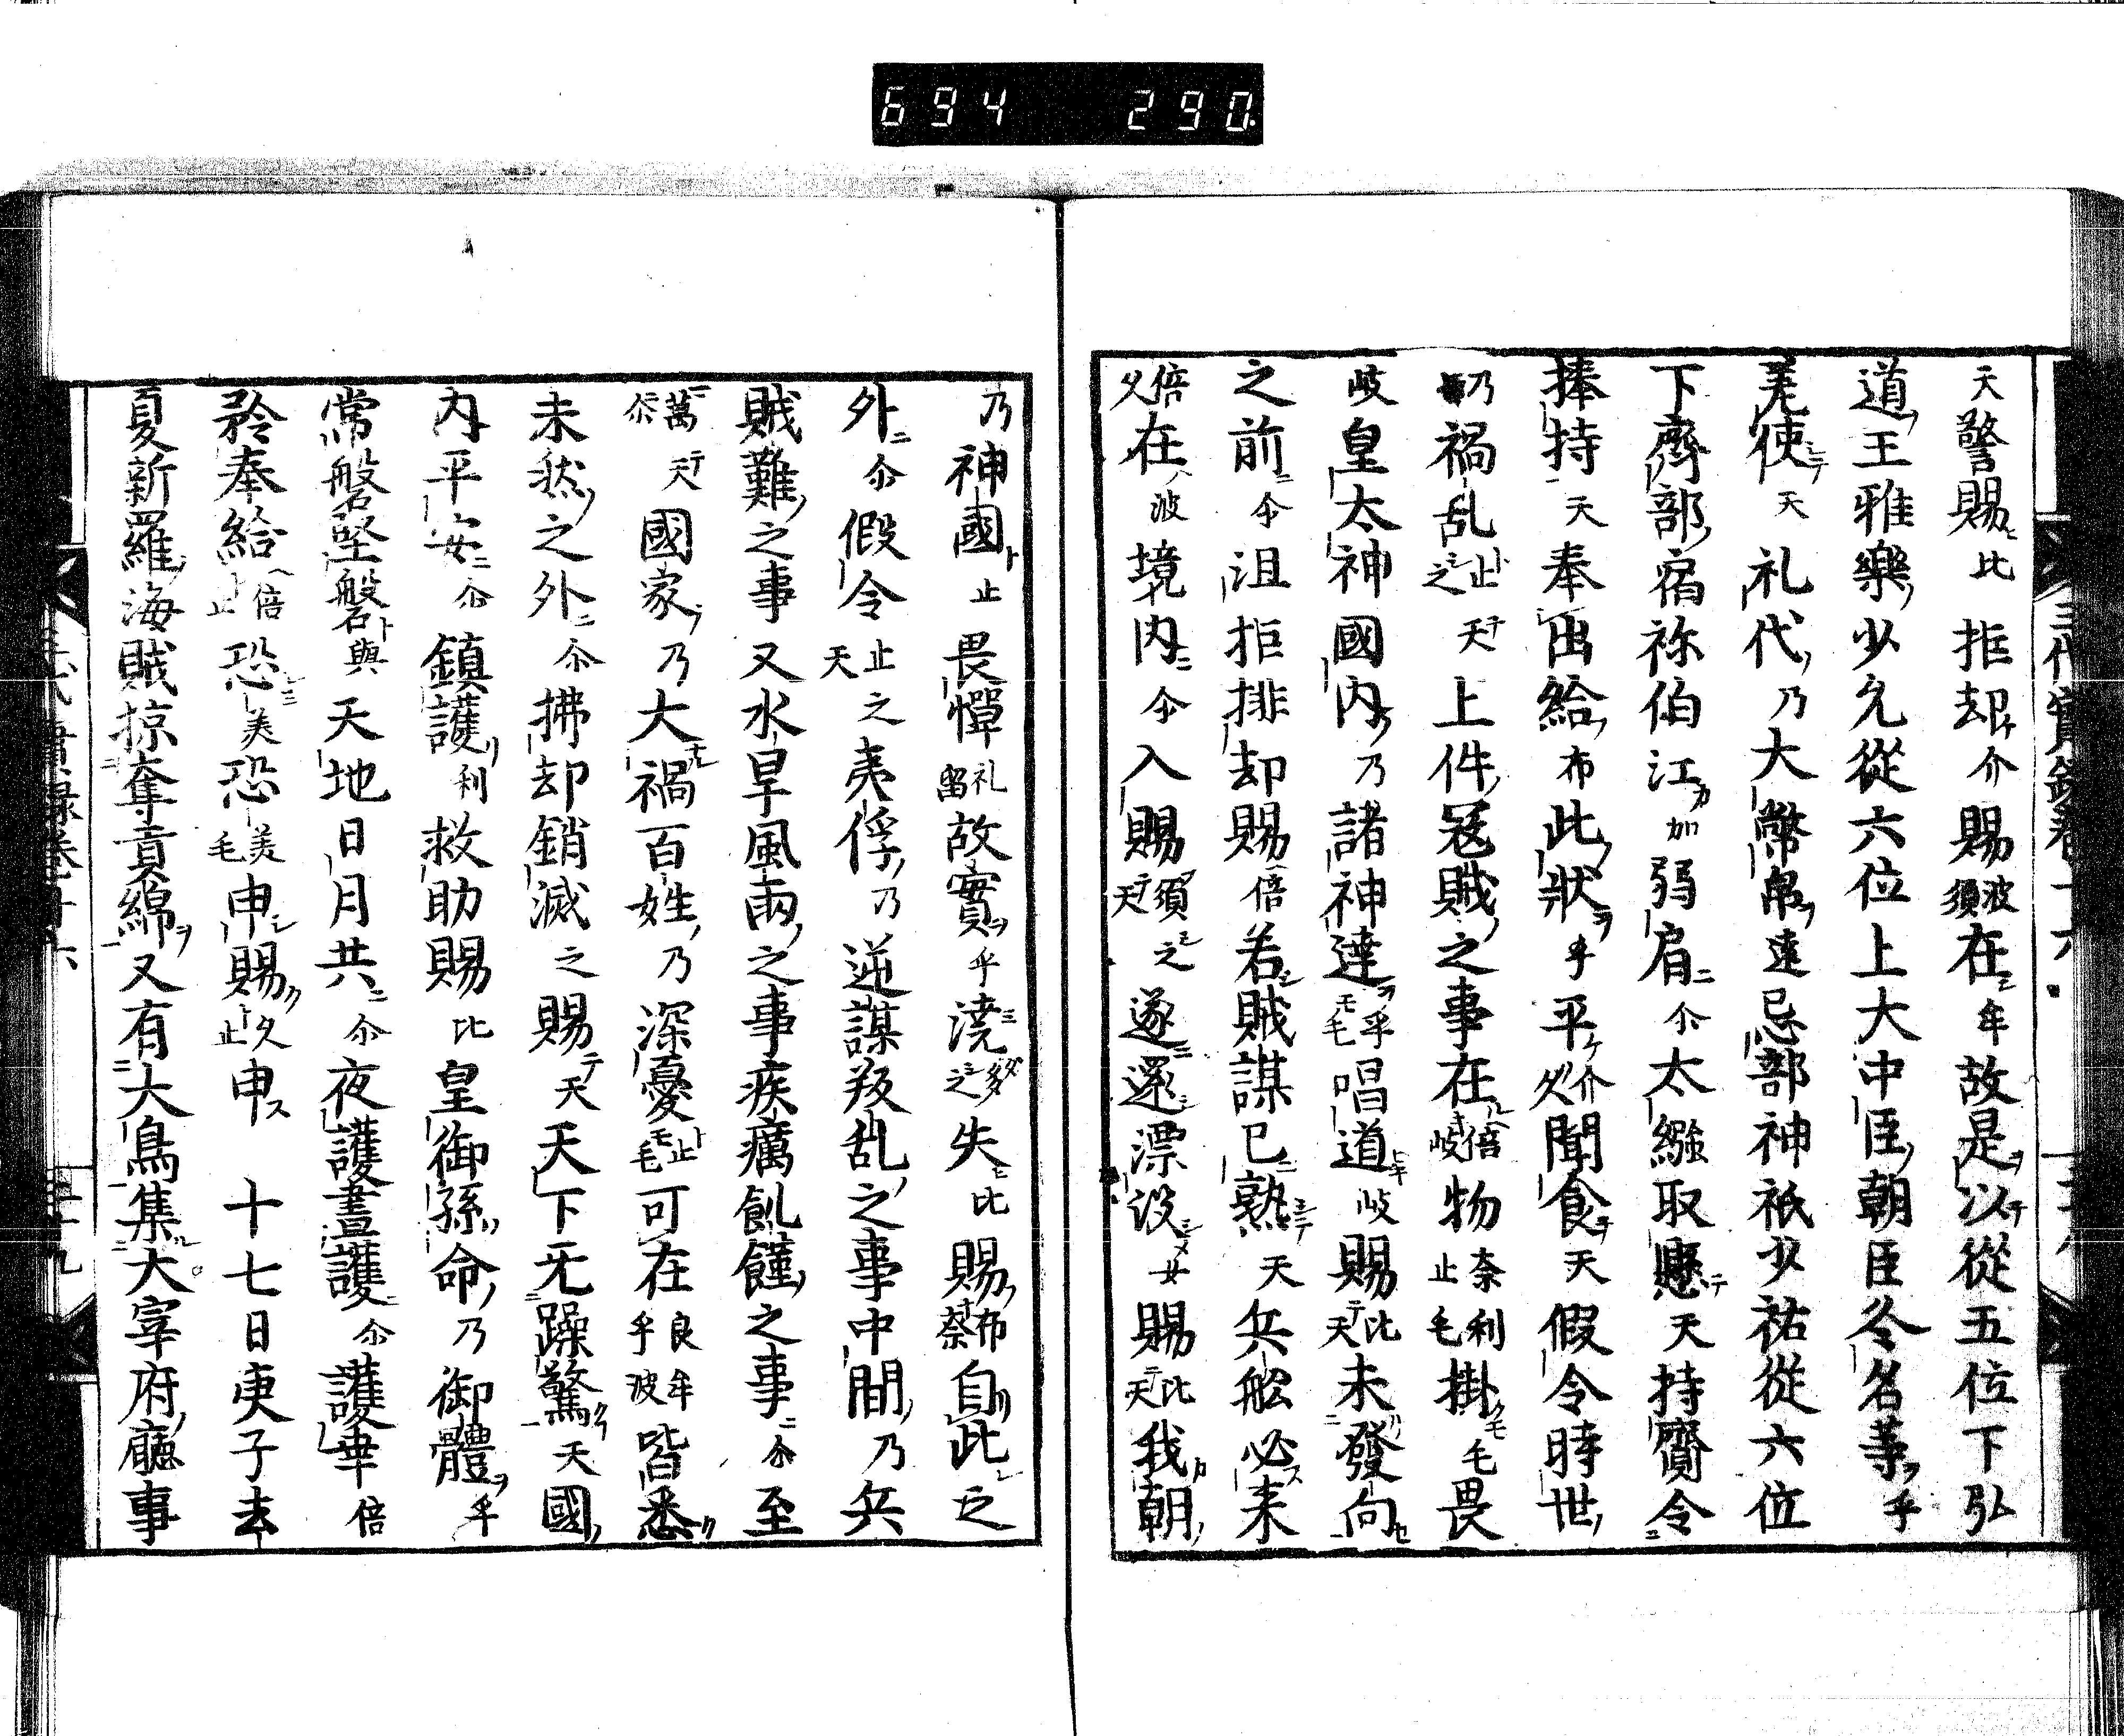 694 290
天警賜比拒却介賜波須在牟故是以從五位下弘
道王雅樂少允從六位上大中臣朝臣冬名等乎
差使天礼代乃大幣帛遠忌部神祇少祐從六位
下齊部宿祢伯江加弱肩尒太繦取懸天持齎令
捧持天奉出給布此狀乎平介久聞食天假令時世
乃禍乱止之天上件寇賊之事在倍岐物奈利止毛掛毛畏
岐皇太神國内乃諸神達乎毛唱導岐賜比天未發向
之前尒沮拒排却賜倍若賊謀已熟天兵舩必來
倍久在波境内尒入賜須之天逐還漂没女賜比天我朝
乃神國止畏憚礼留故實乎澆多之失比賜布奈自此之
外尒假令止之天夷俘乃逆謀叛乱之事中間乃兵
賊難之事又水旱風雨之事疾癘飢饉之事尒至
萬尒天國家乃大禍百姓乃深憂止毛可在良牟乎波皆悉
未然之外尒拂却銷滅之賜天天下无躁驚天國
内平安尒鎮護利救助賜比皇御孫命乃御體乎
常磐堅磐與天地日月共尒夜護晝護尒護幸倍
矜奉給倍止恐美恐美毛申賜久止申 十七日庚子去
夏新羅海賊掠奪貢綿又有大鳥集大宰府廳事
三代實錄卷十六